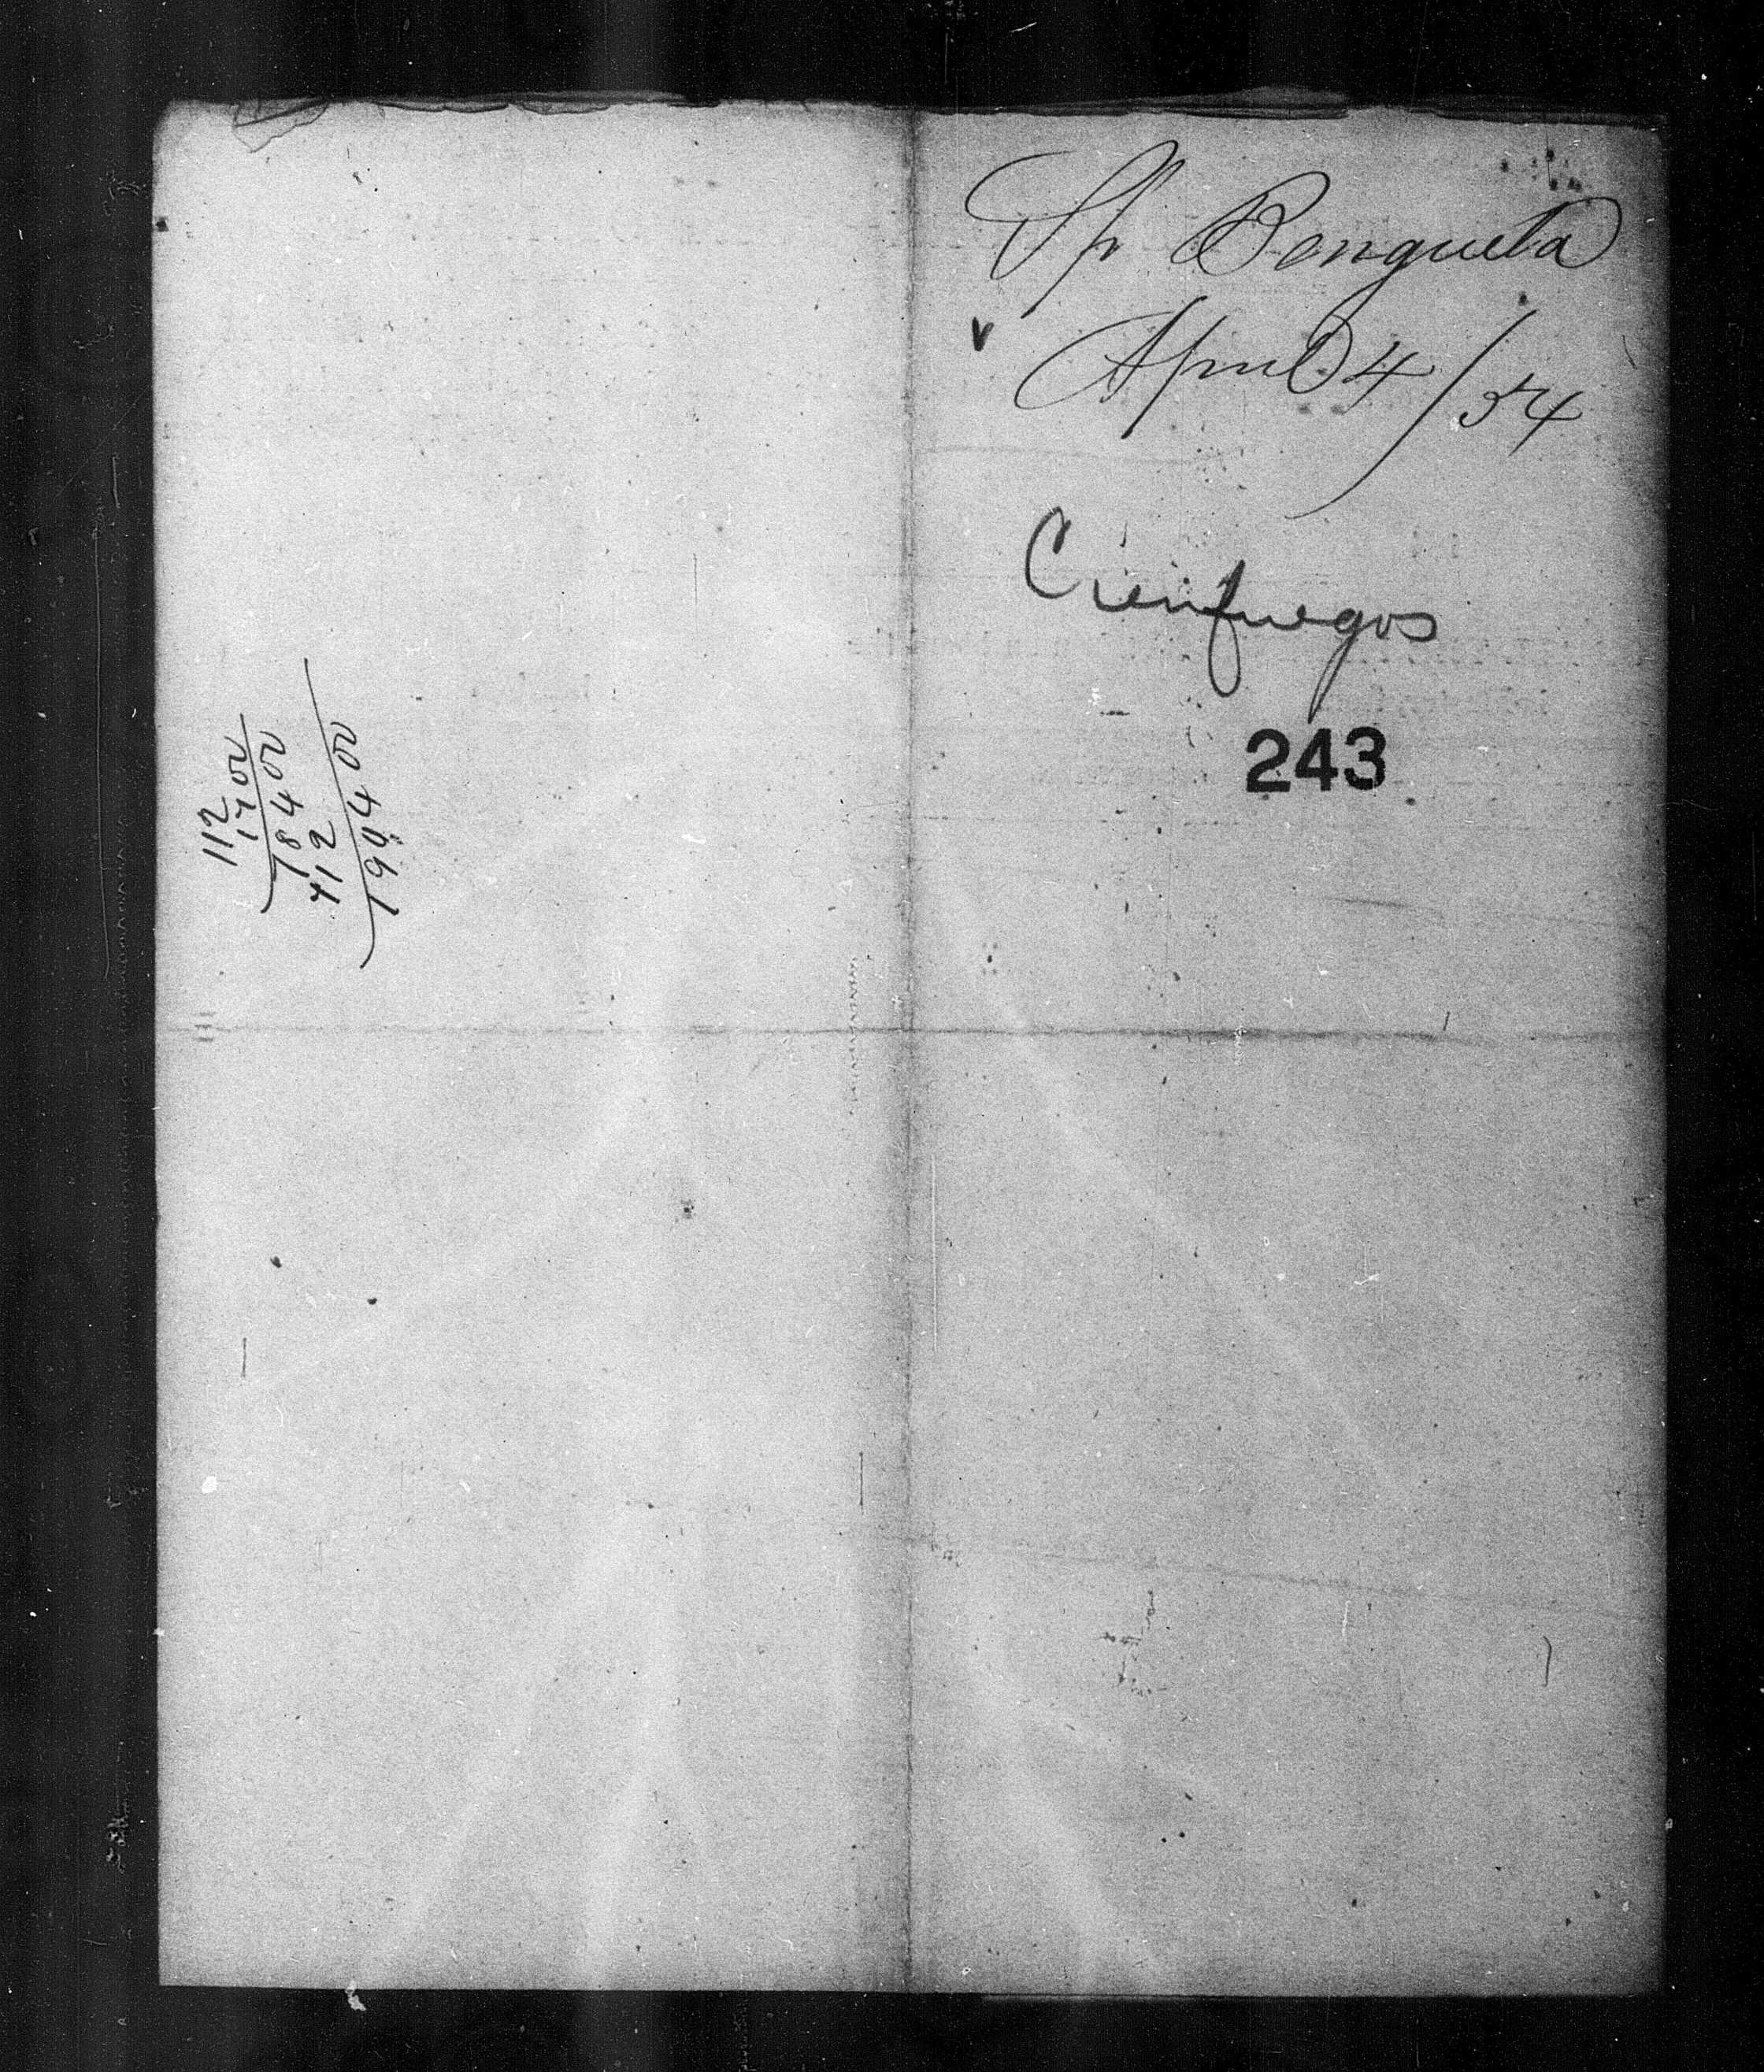 Sp Benguela
v April 4/54
Cienfuegos
243
112
1700
78400
112
190400